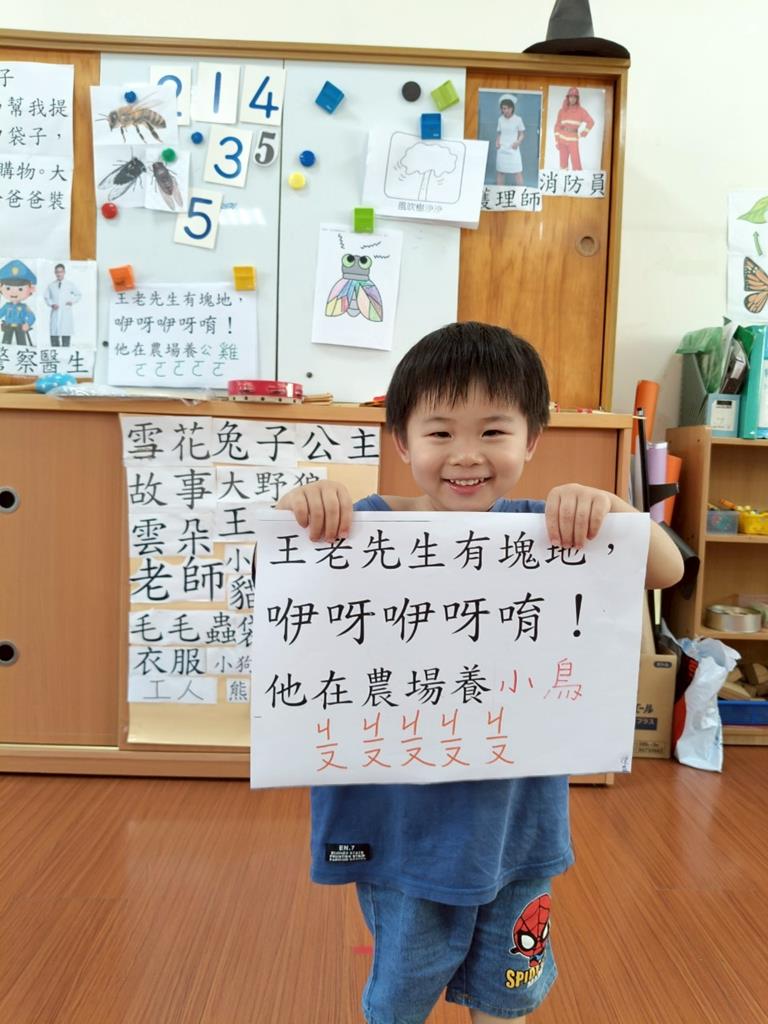 子
幫我提
袋子，
購物。大
爸爸裝
警察醫生
2 1 4
3 5
5
風吹樹沙沙
護理師
消防員
王老先生有塊地，
咿呀咿呀唷！
他在農場養公雞
ㄛㄛㄛㄛㄛ
雪花兔子公主
故事大野狼
雲朵王
老師小
貓
毛毛蟲袋
衣服小狗
工人熊
王老先生有塊地，
咿呀咿呀唷！
他在農場養小鳥
ㄐㄡ ㄐㄡ ㄐㄡ ㄐㄡ ㄐㄡ
EN.7
SPID